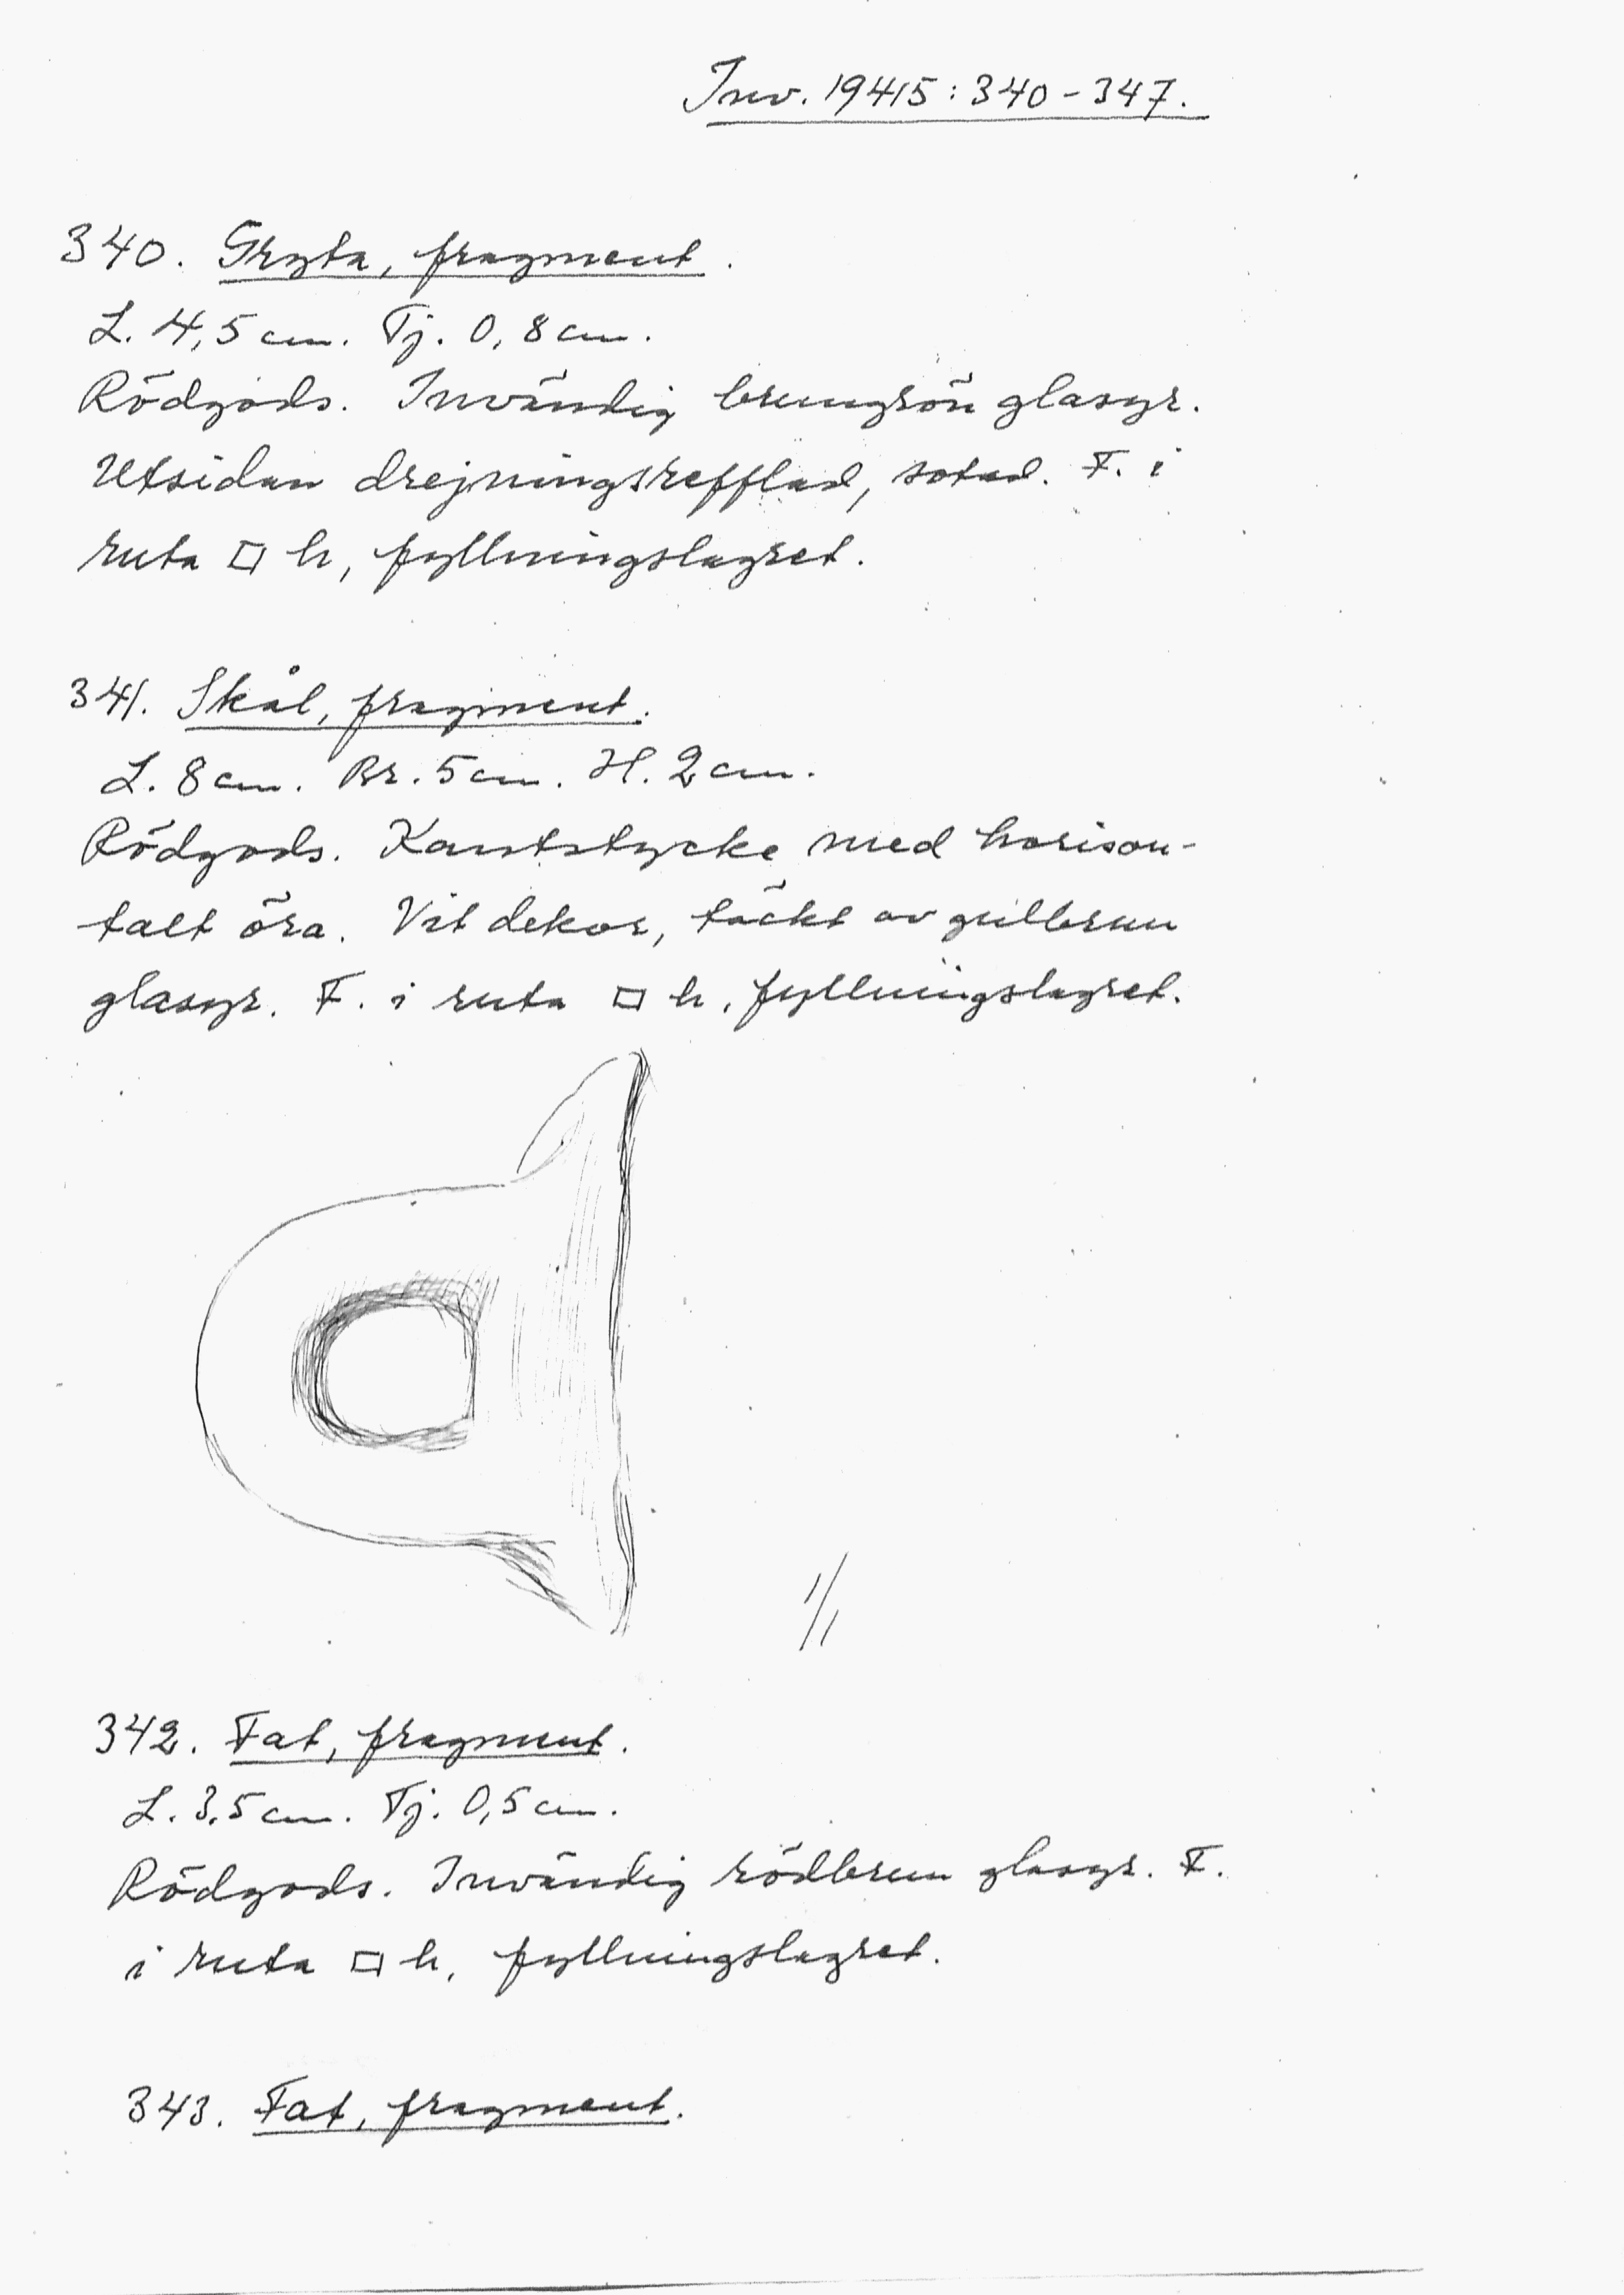 Inv. 19415:340-347.
340. Gryta, fragment.
L. 4,5 cm. Tj. 0,8 cm.
Rödgods. Invändig brungrön glasyr.
Utsidan drejningsrefflad, sotad. F. i
ruta □ h, fyllningslagret.
341. Skål, fragment.
L. 8 cm. Br. 5 cm. H. 2 cm.
Rödgods. Kantstycke med horison-
talt öra. Vit dekor, täckt av gulbrun
glasyr. F. i ruta □ h, fyllningslagret.
1/1
342. Fat, fragment.
L. 3,5 cm. Tj. 0,5 cm.
Rödgods. Invändig rödbrun glasyr. F.
i ruta □ h, fyllningslagret.
343. Fat, fragment.